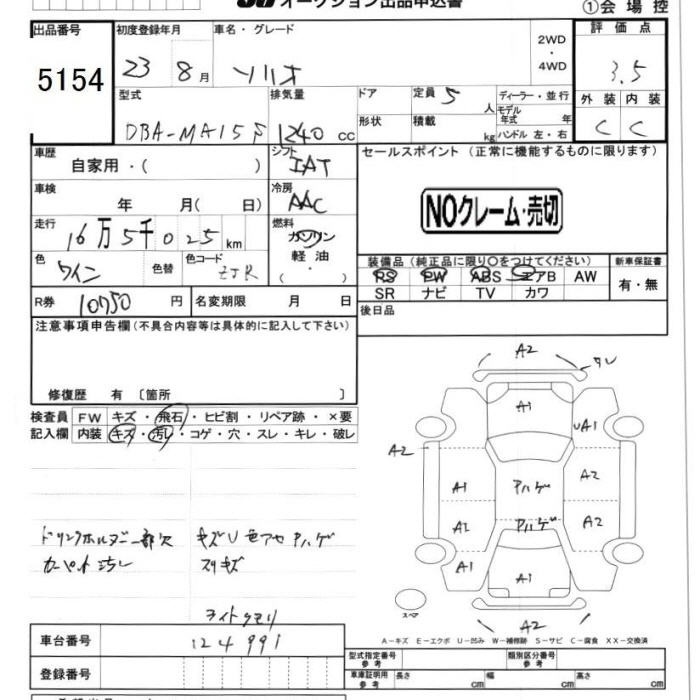 オークション出品申込書
①会場控
出品番号
5154
初度登録年月
23 8月
車名・グレード
ソリオ
2WD
・
4WD
評価点
3.5
型式
DBA-MA15S
排気量
1240 cc
ドア
形状
定員 5 人
積載 kg
ディーラー・並行
モデル年式 年
ハンドル 左・右
外装 内装
C C
車歴
自家用・( )
シフト
IAT
車検
年 月( 日)
冷房
AAC
走行
16万5千025km
燃料
ガソリン
軽油
・
( )
色
ワイン
色替
色コード
ZJR
R券 10750 円
名変期限 月 日
セールスポイント (正常に機能するものに限ります)
NOクレーム・売切
装備品 (純正品に限り○をつけてください)
PS PW ABS エアB AW
SR ナビ TV カワ
新車保証書
有・無
後日品
注意事項申告欄(不具合内容等は具体的に記入して下さい)
修復歴 有 〔箇所 〕
検査員 FW キズ・飛石・ヒビ割・リペア跡・×要
記入欄 内装 キズ・汚レ・コゲ・穴・スレ・キレ・破レ
ドリンクホルダー一部欠
カーペット汚レ
キズU色アセハゲ
スリキズ
ライトクモリ
A2
ズレ
A1
UA1
A2
A1 Aハゲ A2
A1 Aハゲ A2
A1
A1
A2
スペア
A-キズ E-エクボ U-凹み W-補修跡 S-サビ C-腐食 XX-交換済
車台番号
124991
登録番号
型式指定番号
参考
類別区分番号
参考
車庫証明用
参考
長さ cm
幅 cm
高さ cm